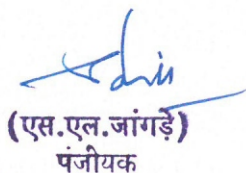 (एस.एल.जांगड़े)
पंजीयक